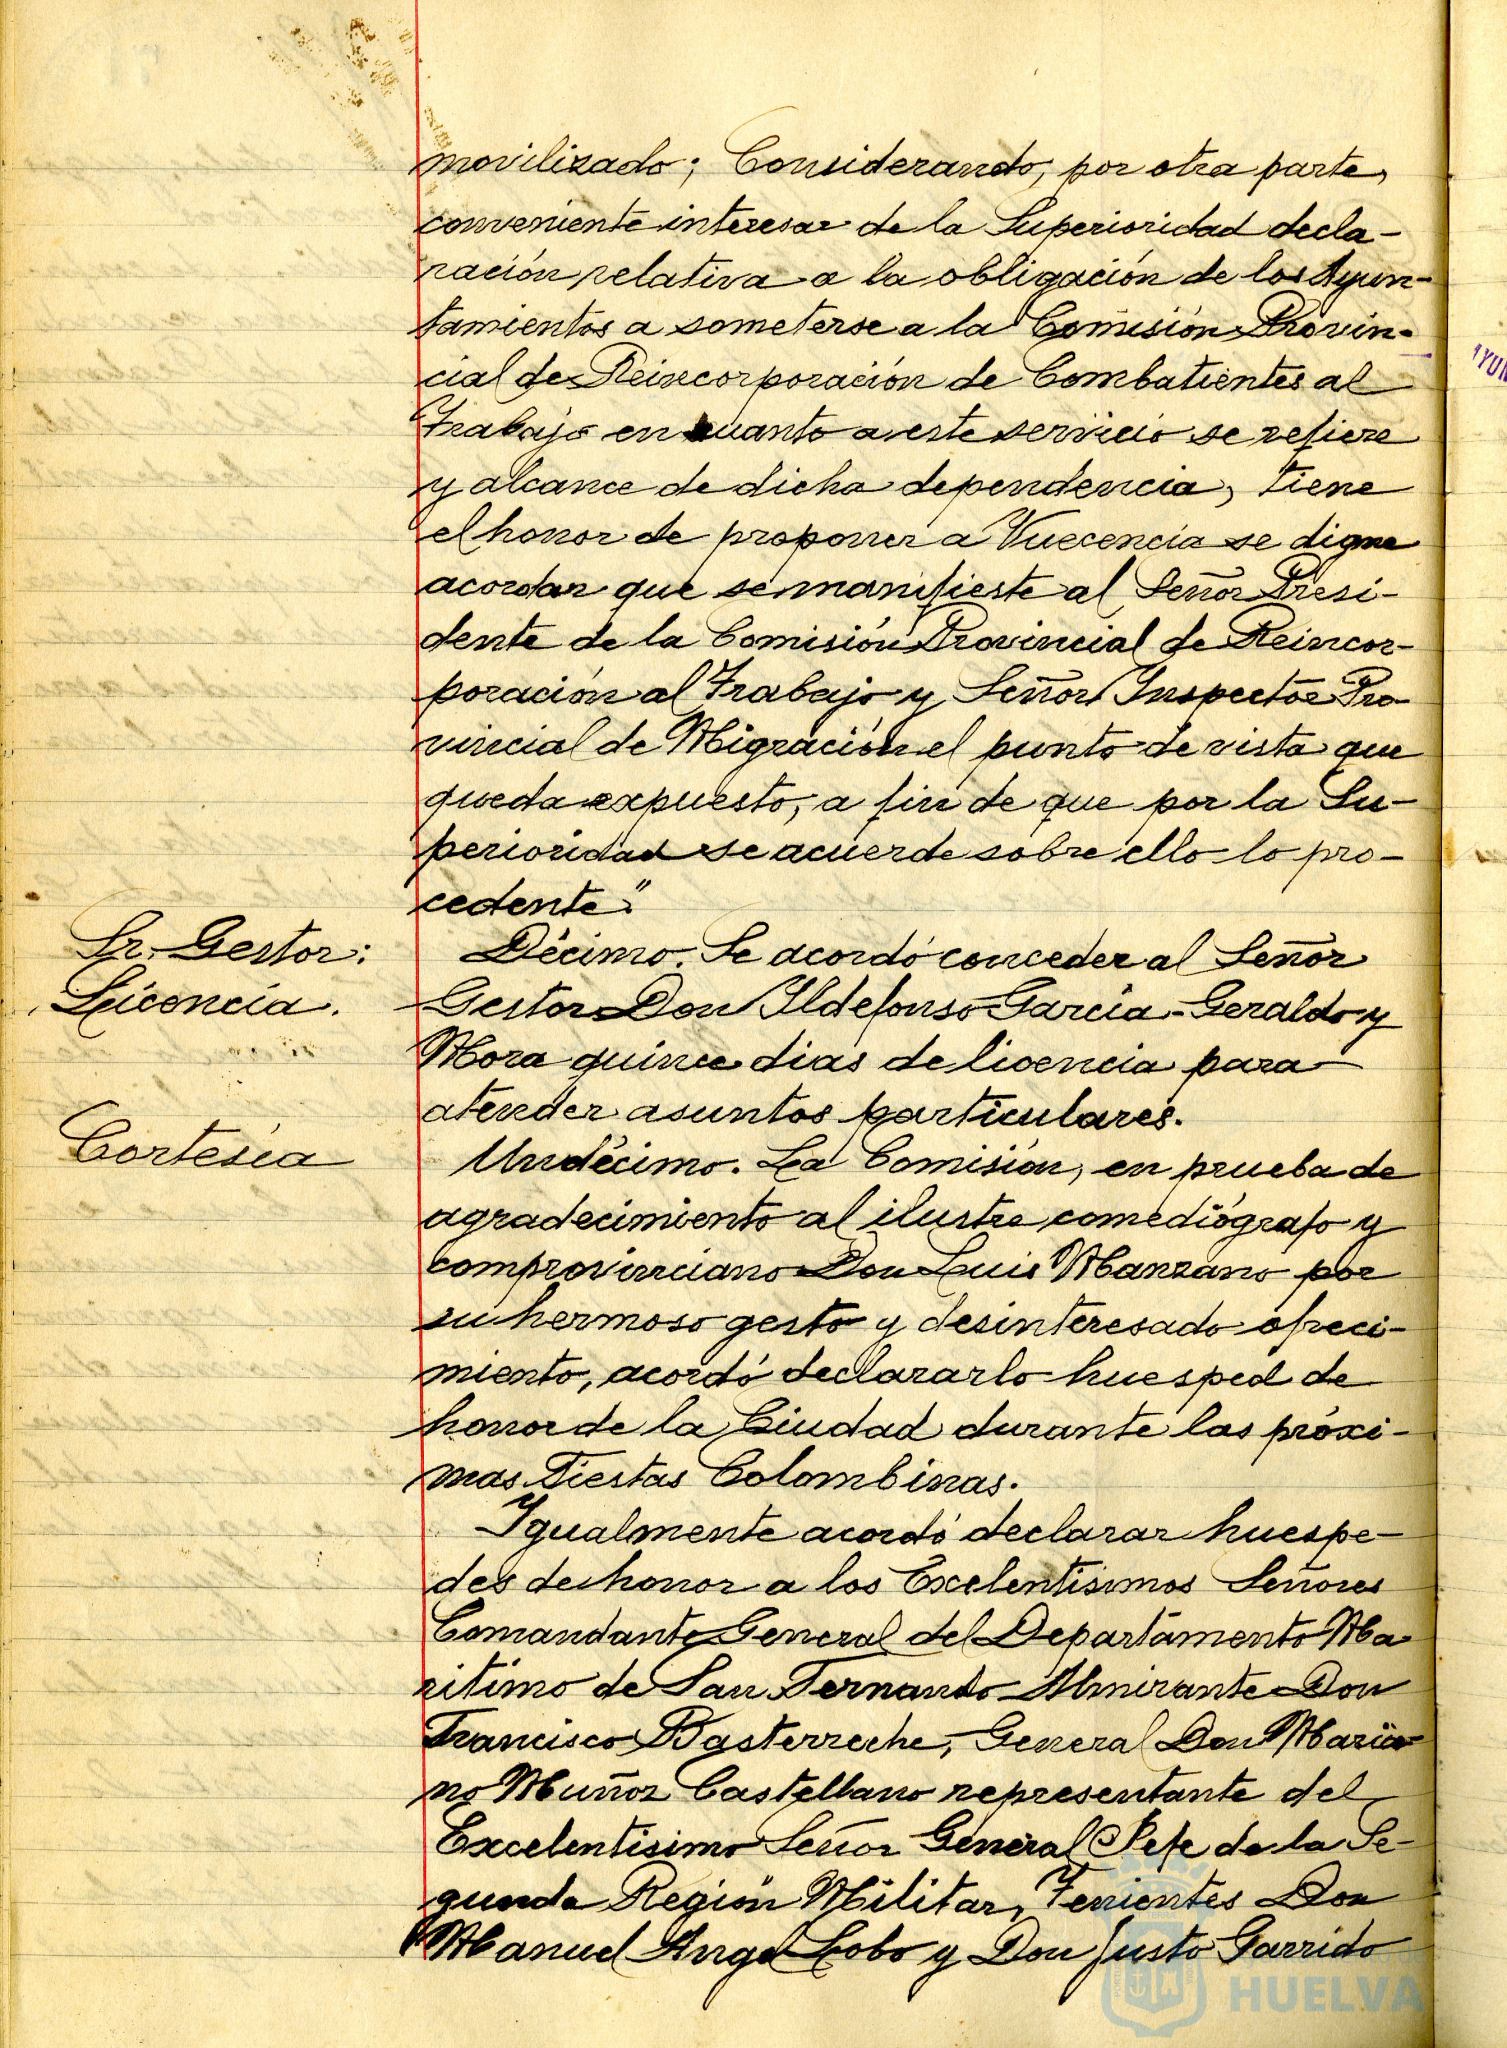 movilizado; Considerando, por otra parte,
conveniente interesar de la Superioridad decla-
ración relativa a la obligación de los Ayun-
tamientos a someterse a la Comisión Provin-
cial de Reincorporación de Combatientes al
Trabajo en cuanto a este servicio se refiere
y alcance de dicha dependencia, tiene
el honor de proponer a Vuecencia se digne
acordar que se manifieste al Señor Presi-
dente de la Comisión Provincial de Reincor-
poración al Trabajo y Señor Inspector Pro-
vincial de Migración el punto de vista que
queda expuesto, a fin de que por la Su-
perioridad se acuerde sobre ello lo pro-
cedente."
Sr. Gestor:
Licencia.
Décimo. Se acordó conceder al Señor
Gestor Don Ildefonso García-Geraldo y
Mora quince dias de licencia para
atender asuntos particulares.
Cortesía
Undécimo. La Comisión, en prueba de
agradecimiento al ilustre comediógrafo y
comprovinciano Don Luis Manzano por
su hermoso gesto y desinteresado ofreci-
miento, acordó declararlo huesped de
honor de la Ciudad durante las próxi-
mas Fiestas Colombinas.
Igualmente acordó declarar huespe-
des de honor a los Excelentísimos Señores
Comandante General del Departamento Ma
ritimo de San Fernando Almirante Don
Francisco Basterreche, General Don Maria
no Muñoz Castellano representante del
Excelentísimo Señor General Jefe de la Se-
gunda Región Militar, Tenientes Don
Manuel Angel Lobo y Don Justo Garrido
HUELVA